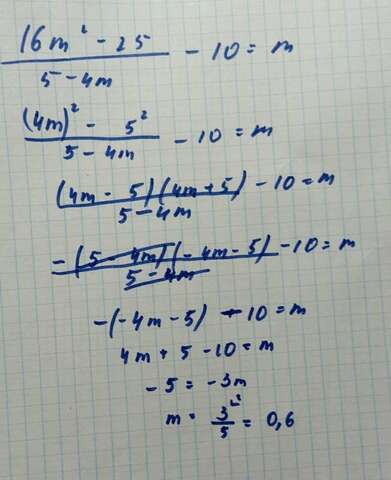 (16m² - 25)/(5 - 4m) - 10 = m
((4m)² - 5²)/(5 - 4m) - 10 = m
((4m - 5)(4m + 5))/(5 - 4m) - 10 = m
-((5 - 4m)(-4m - 5))/(5 - 4m) - 10 = m
-(-4m - 5) - 10 = m
4m + 5 - 10 = m
-5 = -3m
m = 3/5 = 0,6